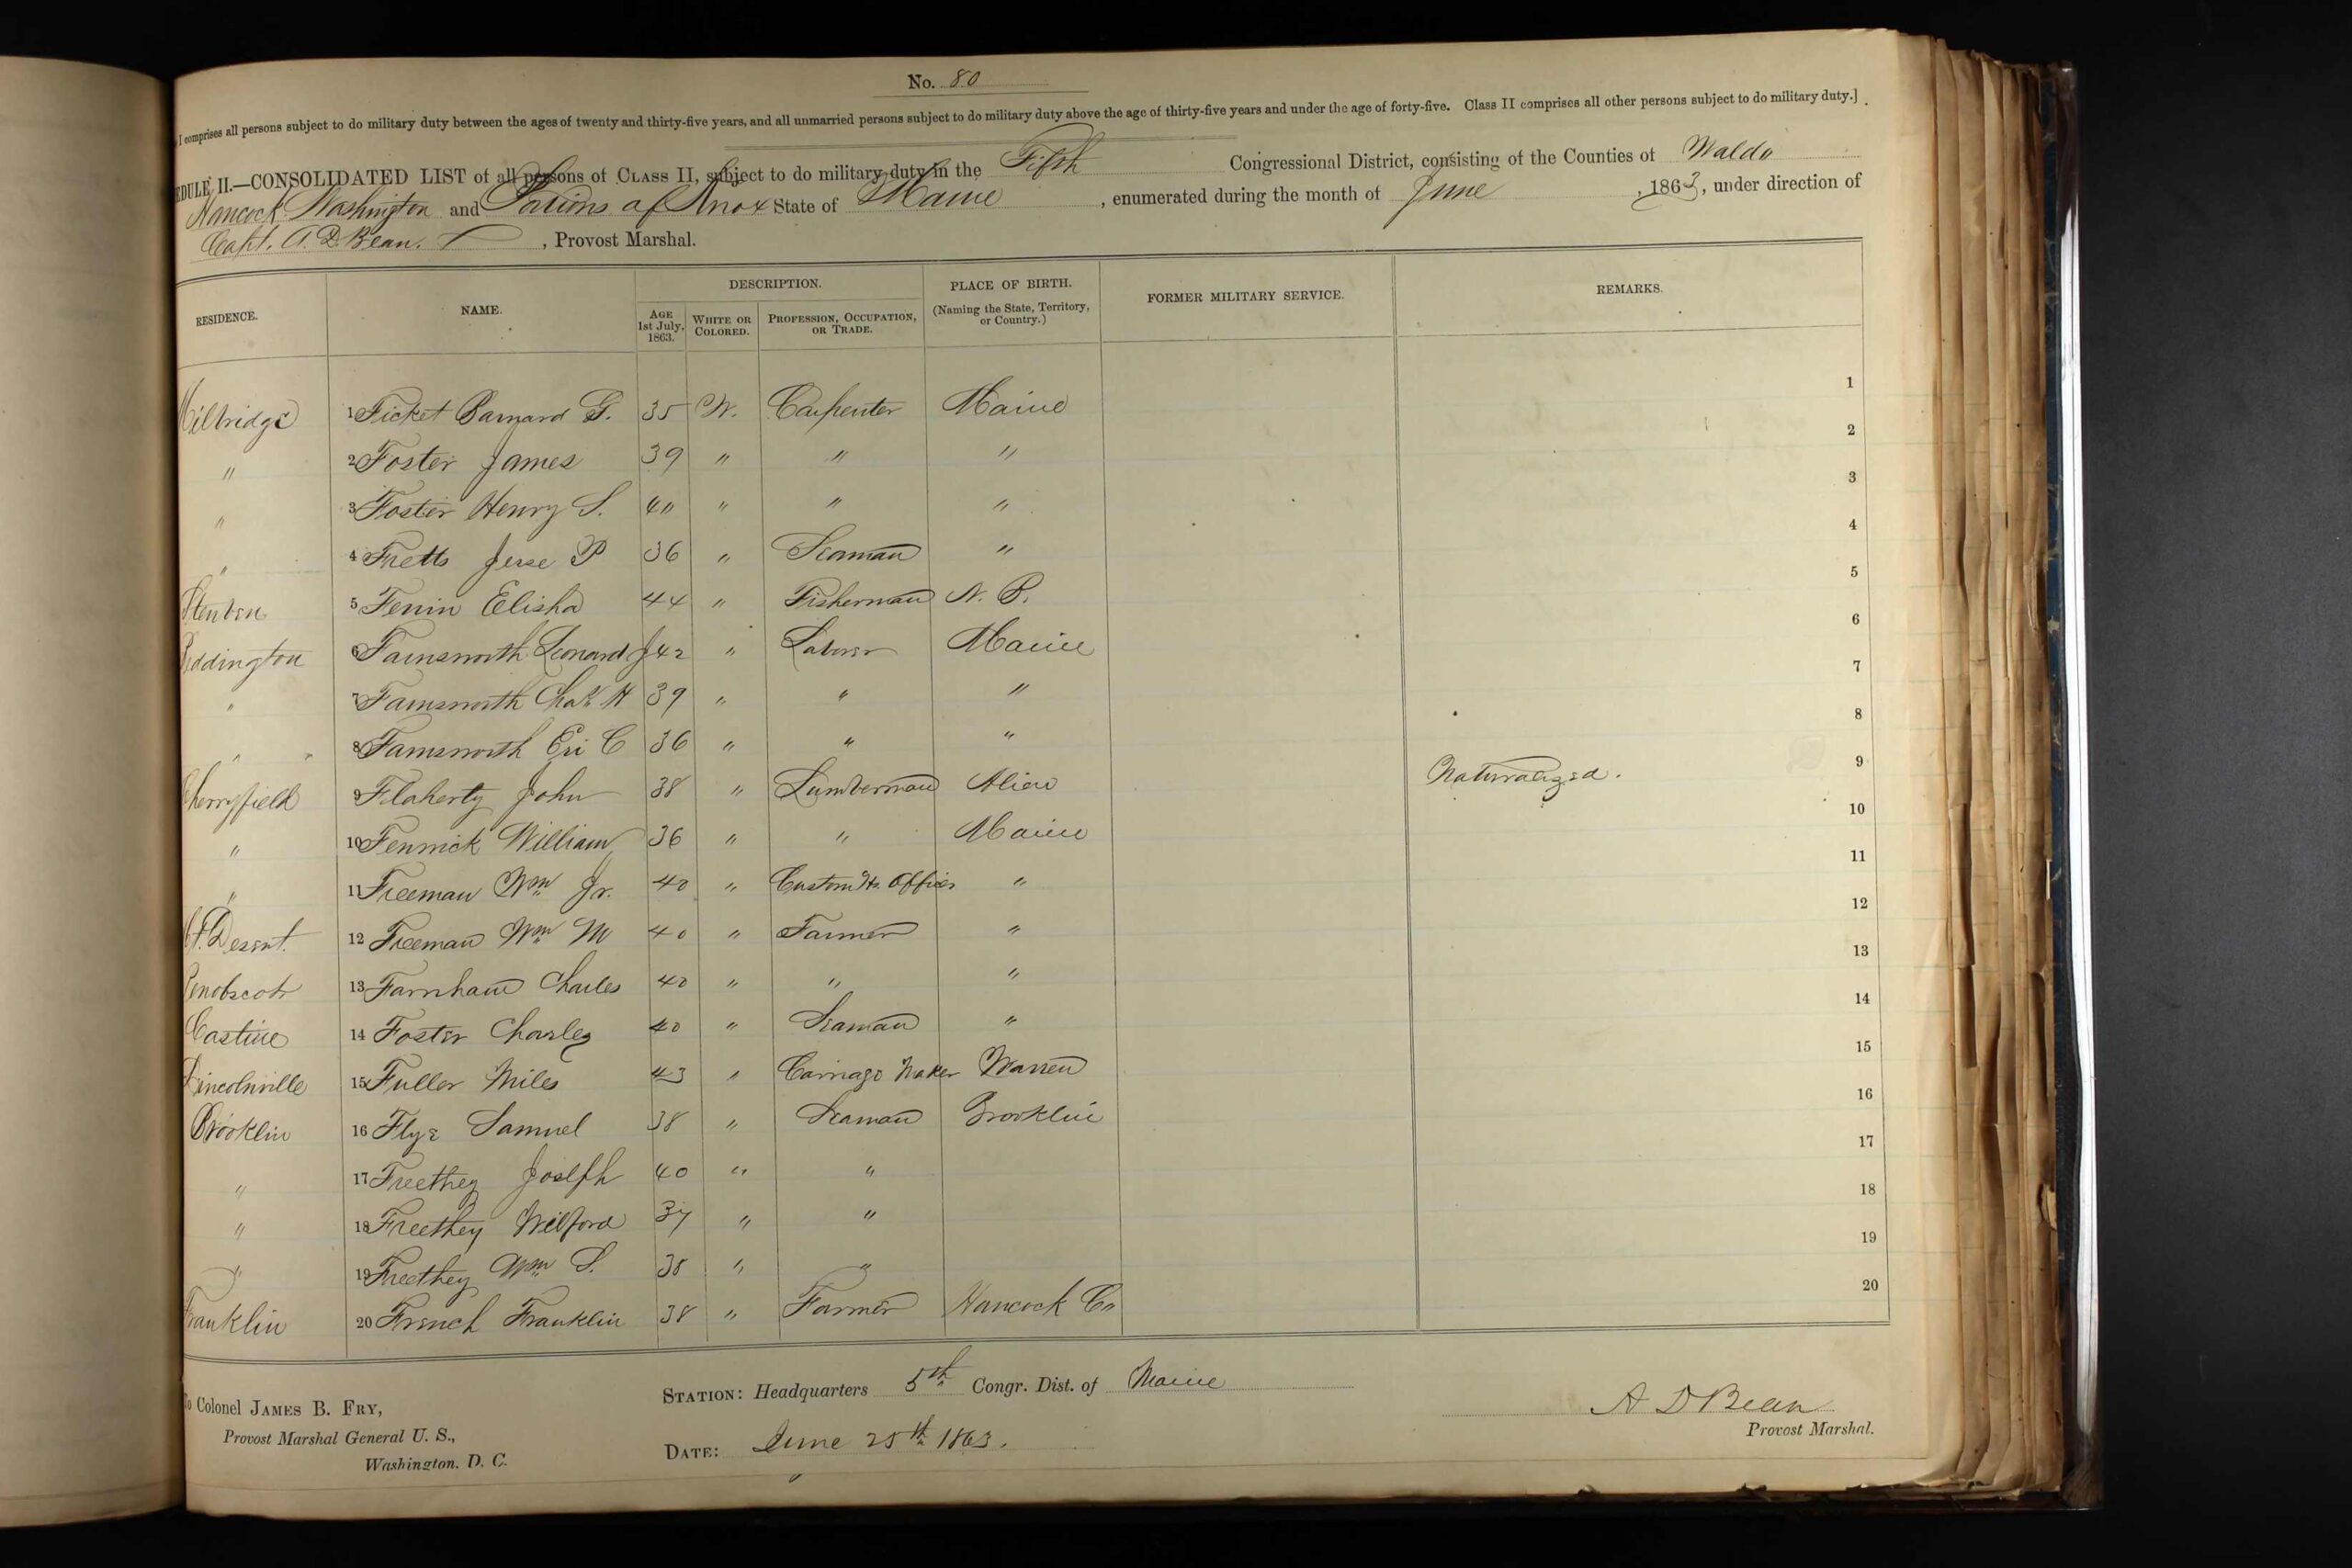 No. 80
I comprises all persons subject to do military duty between the ages of twenty and thirty-five years, and all unmarried persons subject to do military duty above the age of thirty-five years and under the age of forty-five. Class II comprises all other persons subject to do military duty.]
EDULE II.—CONSOLIDATED LIST of all persons of CLASS II, subject to do military duty in the Fifth Congressional District, consisting of the Counties of Waldo
Hancock Washington and Potions of Knox State of Maine, enumerated during the month of June, 1863, under direction of
Capt. A. D. Bean, Provost Marshal.
DESCRIPTION.
RESIDENCE. NAME. AGE 1st July, 1863. WHITE OR COLORED. PROFESSION, OCCUPATION, OR TRADE. PLACE OF BIRTH. (Naming the State, Territory, or Country.) FORMER MILITARY SERVICE. REMARKS.
Milbridge 1 Ficket Barnard G. 35 W. Carpenter Maine 1
" 2 Foster James 39 " " " 2
" 3 Foster Henry S. 40 " " " 3
" 4 Fretts Jesse P 36 " Seaman " 4
Steuben 5 Fenin Elisha 44 " Fisherman N. B. 5
Beddington 6 Farnsworth Leonard J 42 " Laborer Maine 6
" 7 Farnsworth Chas H 39 " " " 7
" 8 Farnsworth Eri C 36 " " " 8
Cherryfield 9 Flaherty John 38 " Lumberman Alien Naturalized. 9
" 10 Fenwick William 36 " " Maine 10
" 11 Freeman Wm Jr. 40 " Custom Ho. Officer " 11
Mt. Desert. 12 Freeman Wm M 40 " Farmer " 12
Penobscot 13 Farnham Charles 40 " " " 13
Castine 14 Foster Charles 40 " Seaman " 14
Lincolnville 15 Fuller Miles 43 " Carriage Maker Warren 15
Brooklin 16 Flye Samuel 38 " Seaman Brooklin 16
" 17 Freethey Joseph 40 " " 17
" 18 Freethey Wilford 37 " " 18
" 19 Freethey Wm S. 38 " " 19
Franklin 20 French Franklin 38 " Farmer Hancock Co 20
To Colonel JAMES B. FRY,
Provost Marshal General U. S.,
Washington, D. C.
STATION: Headquarters 5th Congr. Dist. of Maine
DATE: June 25th 1863.
A D Bean
Provost Marshal.